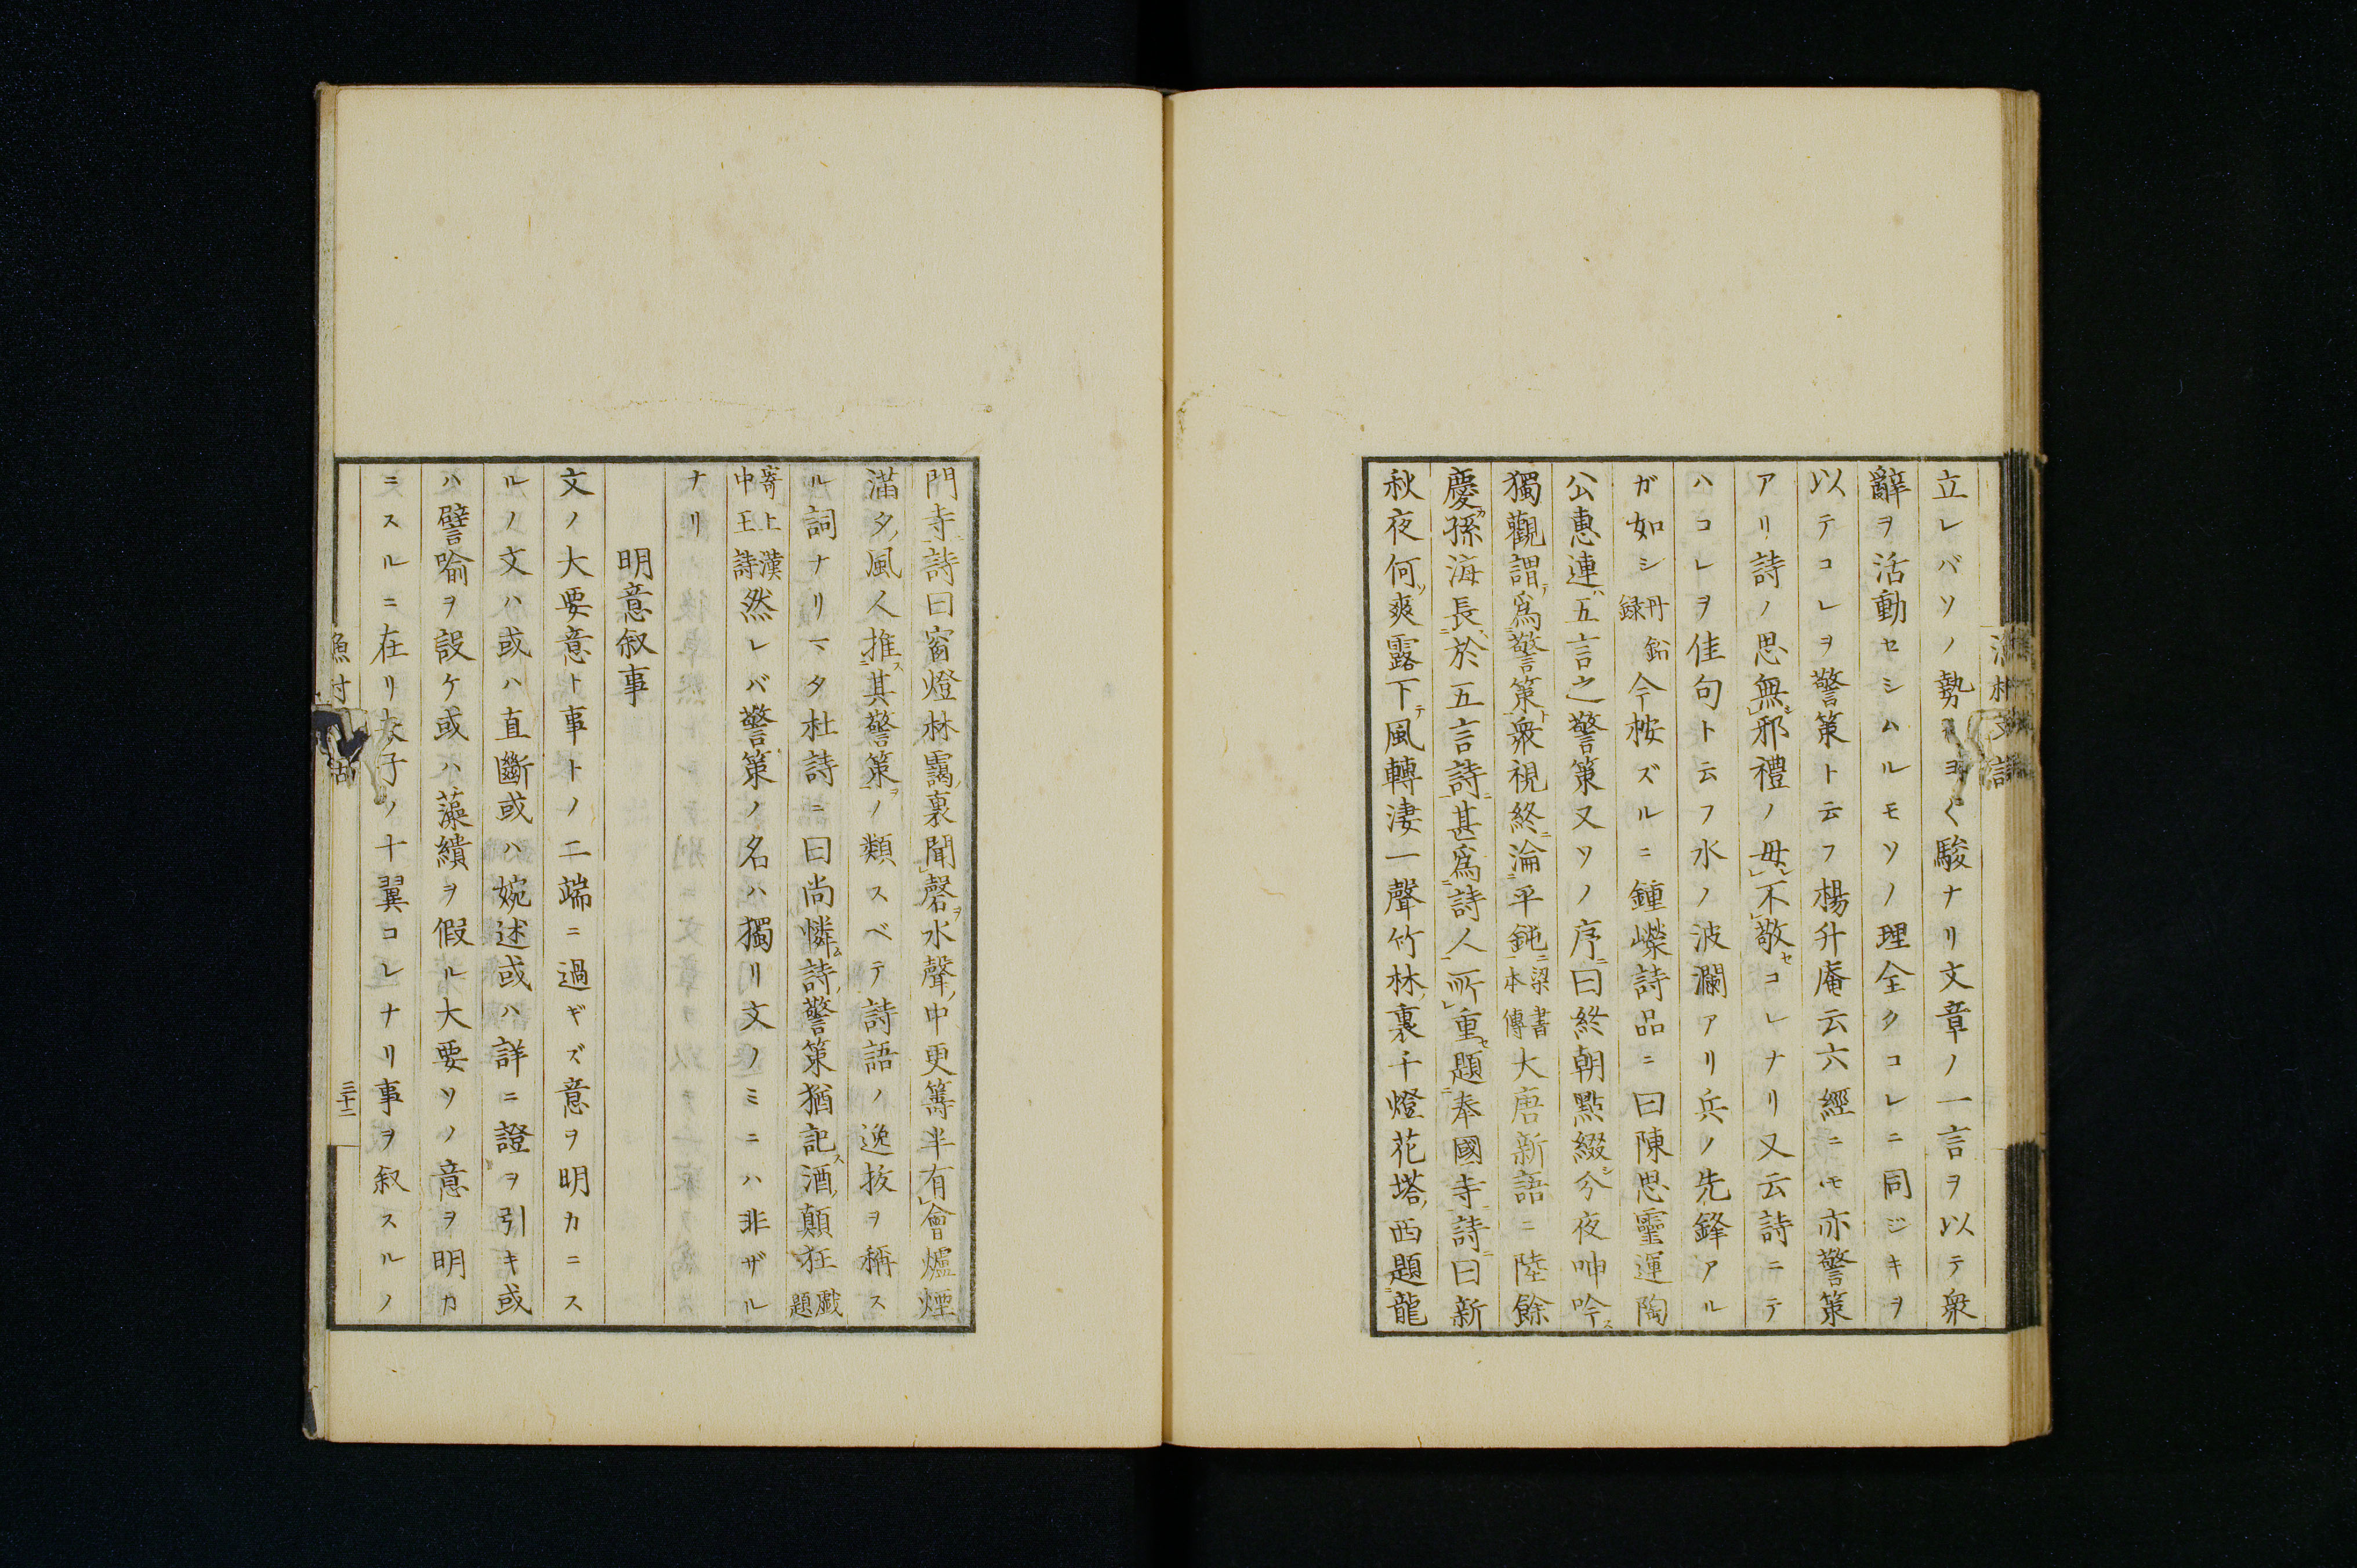 立レバソノ勢マスく駿ナリ文章ノ一言ヲ以テ衆
辭ヲ活動セシムルモソノ理全クコレニ同ジキヲ
以テコレヲ警策ト云フ楊升庵云六經ニモ亦警策
アリ詩ノ思無邪禮ノ毋不敬セコレナリ又云詩ニテ
ハコレヲ佳句ト云フ水ノ波瀾アリ兵ノ先鋒アル
ガ如シ丹鉛録今桉ズルニ鍾嶸詩品ニ曰陳思靈運陶
公惠連五言之警策又ソノ序ニ曰終朝點綴シ分夜呻吟ス
獨觀謂爲警策ト衆視終ニ淪平鈍ニ梁書本傳大唐新語ニ陸餘
慶孫海長於五言詩甚爲詩人所重セ題奉國寺詩曰新
秋夜何爽露下テ風轉淒一聲竹林裏千燈花塔西題龍
門寺詩曰窗燈林靄裏聞磬ヲ水聲中更籌半有會爐煙
滿夕風人推ス其警策ヲノ類スベテ詩語ノ逸抜ヲ稱ス
ル詞ナリマタ杜詩ニ曰尚憐ム詩警策猶記ス酒顛狂戲題
寄上漢中王詩然レバ警策ノ名ハ獨リ文ノミニハ非ザル
ナリ
明意叙事
文ノ大要意ト事トノ二端ニ過ギズ意ヲ明カニス
ルノ文ハ或ハ直斷或ハ婉述或ハ詳ニ證ヲ引キ或
ハ譬喩ヲ設ケ或ハ藻繢ヲ假ル大要ソノ意ヲ明カ
ニスルニ在リ夫子ノ十翼コレナリ事ヲ叙スルノ
三十二